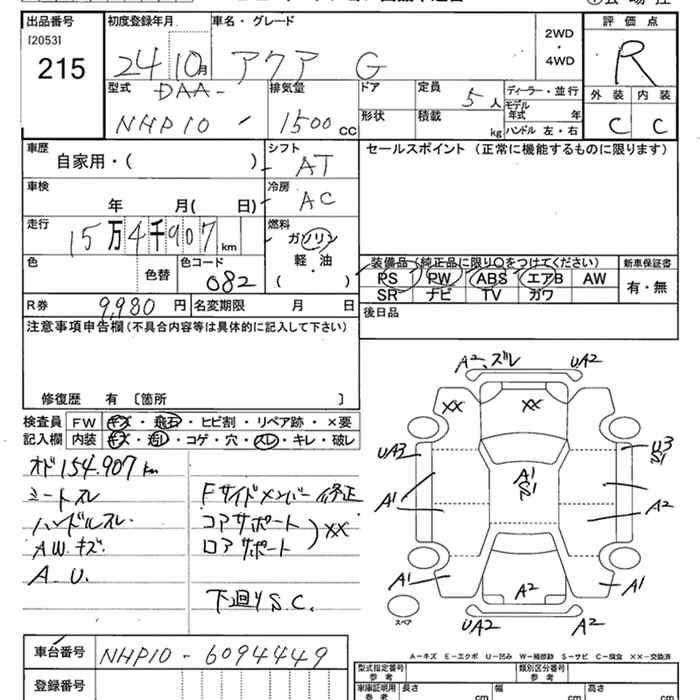 出品番号 初度登録年月 車名・グレード 評価点
[2053] 2WD
215 24 10月 アクア G ・ R
4WD
型式 DAA- 排気量 ドア 定員 5人 ディーラー・並行 外装 内装
NHP10 - 1500cc 形状 積載 kg モデル年式 年 C C
ハンドル 左・右
車歴 シフト セールスポイント(正常に機能するものに限ります)
自家用・( ) AT
車検 冷房
年 月( 日) AC
走行 燃料
15万4千907km ガソリン
軽・油
色 色替 色コード 082 ( )
装備品(純正品に限り○をつけてください) 新車保証書
PS PW ABS エアB AW 有・無
SR ナビ TV ガワ
R券 9,980円 名変期限 月 日 後日品
注意事項申告欄(不具合内容等は具体的に記入して下さい)
修復歴 有 〔箇所 〕
検査員 FW キズ・飛石・ヒビ割・リペア跡・×要
記入欄 内装 キズ・汚レ・コゲ・穴・スレ・キレ・破レ
オド154.907km
シートスレ Fサイドメンバー修正
ハンドルスレ コアサポート
A.W.キズ ロアサポート ) XX
A.U.
下廻りS.C.
A2、ズレ UA2
XX XX
UA3 U3
S1
A1
S1
A1 A2
A1 A2 A1
スペア UA2 A2
A-キズ E-エクボ U-凹み W-補修跡 S-サビ C-腐食 XX-交換済
車台番号 NHP10-6094449
登録番号
型式指定番号 参考 類別区分番号 参考
車庫証明用 参考 長さ cm 幅 cm 高さ cm